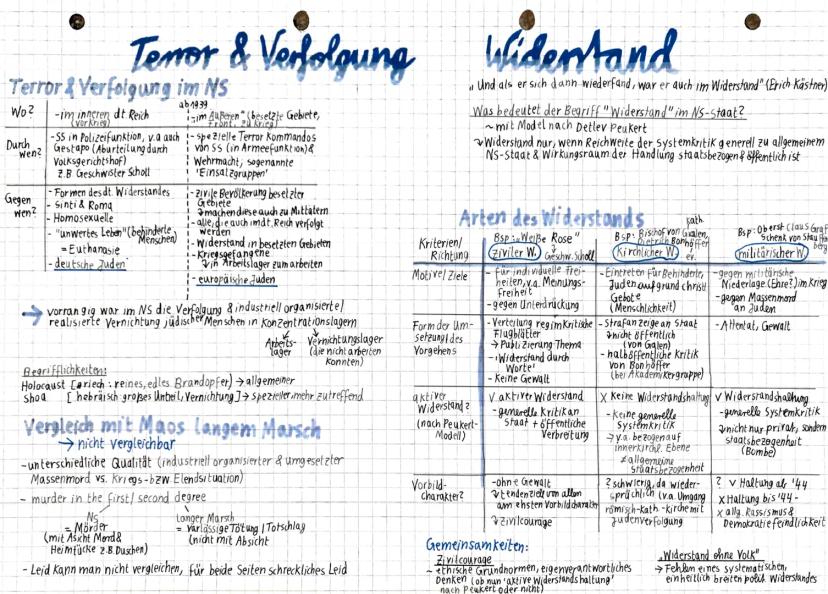 Terror & Verfolgung
Terror & Verfolgung im NS
Wo?
-im inneren dt Reich
(vor Krieg)
ab 1939
-im Äußeren" (besetzte Gebiete,
Front, zu Krieg)
Durch
wen?
-SS in Polizeifunktion, v.a auch
Gestapo (Aburteilung durch
Volksgerichtshof)
z.B Geschwister Scholl
-spezielle Terror Kommandos
von SS (in Armeefunktion) &
Wehrmacht, sogenannte
'Einsatzgruppen'
Gegen
wen?
-Formen des dt. Widerstandes
-Sinti & Roma
-Homosexuelle
-"unwertes Leben" (behinderte
Menschen)
=Euthanasie
-deutsche Juden
-zivile Bevölkerung besetzter
Gebiete
machen diese auch zu Mittätern
-alle, die auch im dt. Reich verfolgt
werden
-Widerstand in besetzten Gebieten
-Kriegsgefangene
in Arbeitslager zum arbeiten
-europäische Juden
→ vorrangig war im NS die Verfolgung & industriell organisierte/
realisierte Vernichtung jüdischer Menschen in Konzentrationslagern
Arbeits-
lager
Vernichtungslager
(die nicht arbeiten
konnten)
Begrifflichkeiten:
Holocaust [griech: reines, edles Brandopfer] → allgemeiner
Shoa [hebräisch großes Unheil, Vernichtung] → spezieller mehr zutreffend
Vergleich mit Maos langem Marsch
→ nicht vergleichbar
-unterschiedliche Qualität (industriell organisierter & umgesetzter
Massenmord vs. Kriegs-bzw Elendsituation)
- murder in the first/second degree
NS
= Mörder
(mit Asicht Mord &
Heimtücke z.B. Duschen)
Longer Marsch
= varlässige Tötung / Totschlag
(nicht mit Absicht)
- Leid kann man nicht vergleichen, für beide Seiten schreckliches Leid
Widerstand
"Und als er sich dann wiederfand, war er auch im Widerstand" (Erich Kästner)
Was bedeutet der Begriff "Widerstand" im NS-Staat?
~ mit Model nach Detlev Peukert
Widerstand nur, wenn Reichweite der Systemkritik generell zu allgemeinem
NS-Staat & Wirkungsraum der Handlung staatsbezogen & öffentlich ist
Arten des Widerstands
Kriterien/
Richtung
Bsp.: "Weiße Rose"
ziviler W.
Geschw. Scholl
kath.
Bsp: Bischof von Galen,
Dietrich Bonhöffer
ev.
Kirchlicher W.
Bsp: Oberst Claus Graf
Schenk von Stauffen
berg
militärischer W.
Motive/Ziele
- für individuelle Frei-
heiten, v.a. Meinungs-
freiheit
-gegen Unterdrückung
-Eintreten für Behinderte,
Juden aufgrund christ
Gebote
(Menschlichkeit)
-gegen militärische
Niederlage (Ehre?) im Krieg
-gegen Massenmord
an Juden
Form der Um-
setzung/des
Vorgehens
-Verteilung regimkritische
Flugblätter
→ Publizierung Thema
-'Widerstand durch
Worte'
-keine Gewalt
-Strafanzeige an Staat
nicht öffentlich
(von Galen)
-halböffentliche Kritik
von Bonhöffer
(bei Akademikergruppe)
-Attentat, Gewalt
aktiver
Widerstand?
(nach Peukert-
Modell)
v aktiver Widerstand
-generelle Kritik an
Staat + öffentliche
Verbreitung
x Keine Widerstandshaltung
-keine generelle
Systemkritik
→ v.a. bezogen auf
innerkirchl. Ebene
≠ allgemeine
Staatsbezogenheit
v Widerstandshaltung
-generelle Systemkritik
nicht nur privat, sondern
staatsbezogenheit
(Bombe)
Vorbild-
charakter?
-ohne Gewalt
tendenziell von allen
am ehsten Vorbildcharakter
Zivilcourage
? schwierig, da wieder-
sprüchlich (v.a. Umgang
römisch-kath-kirche mit
Judenverfolgung
? v Haltung ab '44
x Haltung bis '44-
x allg. Rassismus &
Demokratiefeindlichkeit
Gemeinsamkeiten:
Zivilcourage
~ ethische Grundnormen, eigenverantwortliches
Denken (ob nun 'aktive Widerstandshaltung'
nach Peukert oder nicht)
"Widerstand ohne Volk"
→ Fehlen eines systematischen,
einheitlich breiten polit Widerstandes